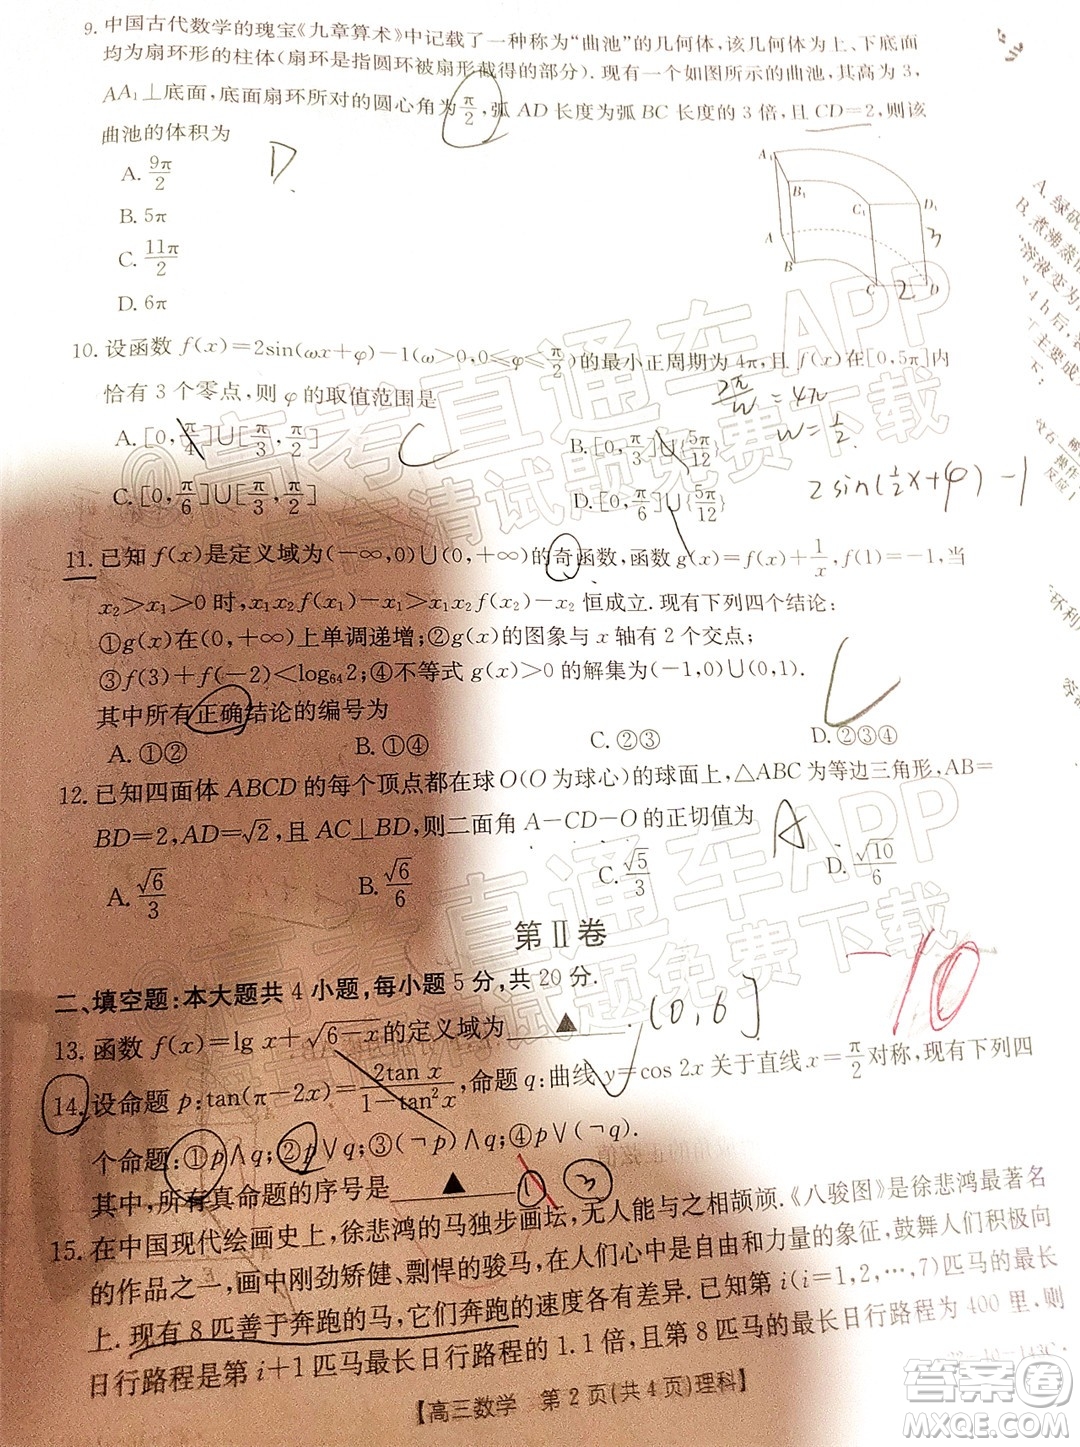 9. 中国古代数学的瑰宝《九章算术》中记载了一种称为“曲池”的几何体，该几何体为上、下底面
均为扇环形的柱体(扇环是指圆环被扇形截得的部分). 现有一个如图所示的曲池，其高为 3，
AA₁⊥底面，底面扇环所对的圆心角为π/2，弧 AD 长度为弧 BC 长度的 3 倍，且 CD=2，则该
曲池的体积为
D
A. 9π/2
B. 5π
C. 11π/2
D. 6π
A₁ B₁ C₁ D₁ A B C D 3 2
10. 设函数 f(x)=2sin(ωx+φ)-1(ω>0,0≤φ≤π/2)的最小正周期为 4π，且 f(x)在[0,5π]内
恰有 3 个零点，则 φ 的取值范围是
2π/w=4π
w=1/2
C
A. [0,π/4]∪[π/3,π/2]
B. [0,π/3]∪{5π/12}
C. [0,π/6]∪[π/3,π/2]
D. [0,π/6]∪{5π/12}
2sin(1/2x+φ)-1
11. 已知 f(x)是定义域为(-∞,0)∪(0,+∞)的奇函数，函数 g(x)=f(x)+1/x，f(1)=-1，当
x₂>x₁>0 时，x₁x₂f(x₁)-x₁>x₁x₂f(x₂)-x₂ 恒成立. 现有下列四个结论:
①g(x)在(0,+∞)上单调递增;②g(x)的图象与 x 轴有 2 个交点;
③f(3)+f(-2)<log₆₄2;④不等式 g(x)>0 的解集为(-1,0)∪(0,1).
其中所有正确结论的编号为
A. ①②
B. ①④
C. ②③
D. ②③④
12. 已知四面体 ABCD 的每个顶点都在球 O(O 为球心)的球面上，△ABC 为等边三角形，AB=
BD=2，AD=√2，且 AC⊥BD，则二面角 A-CD-O 的正切值为
A
A. √6/3
B. √6/6
C. √5/3
D. √10/6
第Ⅱ卷
-10
二、填空题:本大题共 4 小题，每小题 5 分，共 20 分.
13. 函数 f(x)=lg x+√(6-x)的定义域为 ▲ .
(0,6]
14. 设命题 p:tan(π-2x)=2tan x/(1-tan²x)，命题 q:曲线 y=cos 2x 关于直线 x=π/2对称，现有下列四
个命题:①p∧q;②p∨q;③(¬p)∧q;④p∨(¬q).
其中，所有真命题的序号是 ▲
① ③
15. 在中国现代绘画史上，徐悲鸿的马独步画坛，无人能与之相颉颃.《八骏图》是徐悲鸿最著名
的作品之一，画中刚劲矫健、剽悍的骏马，在人们心中是自由和力量的象征，鼓舞人们积极向
上. 现有 8 匹善于奔跑的马，它们奔跑的速度各有差异. 已知第 i(i=1,2,…,7)匹马的最长
日行路程是第 i+1 匹马最长日行路程的 1.1 倍，且第 8 匹马的最长日行路程为 400 里，则
【高三数学 第 2 页(共 4 页)理科】
A. 绿矾
B. 煮沸蒸
“溶液变为
4 h
@高考直通车APP
高清试题免费下载
@高考直通车APP
试题免费下载
答案圈
MXQE.COM